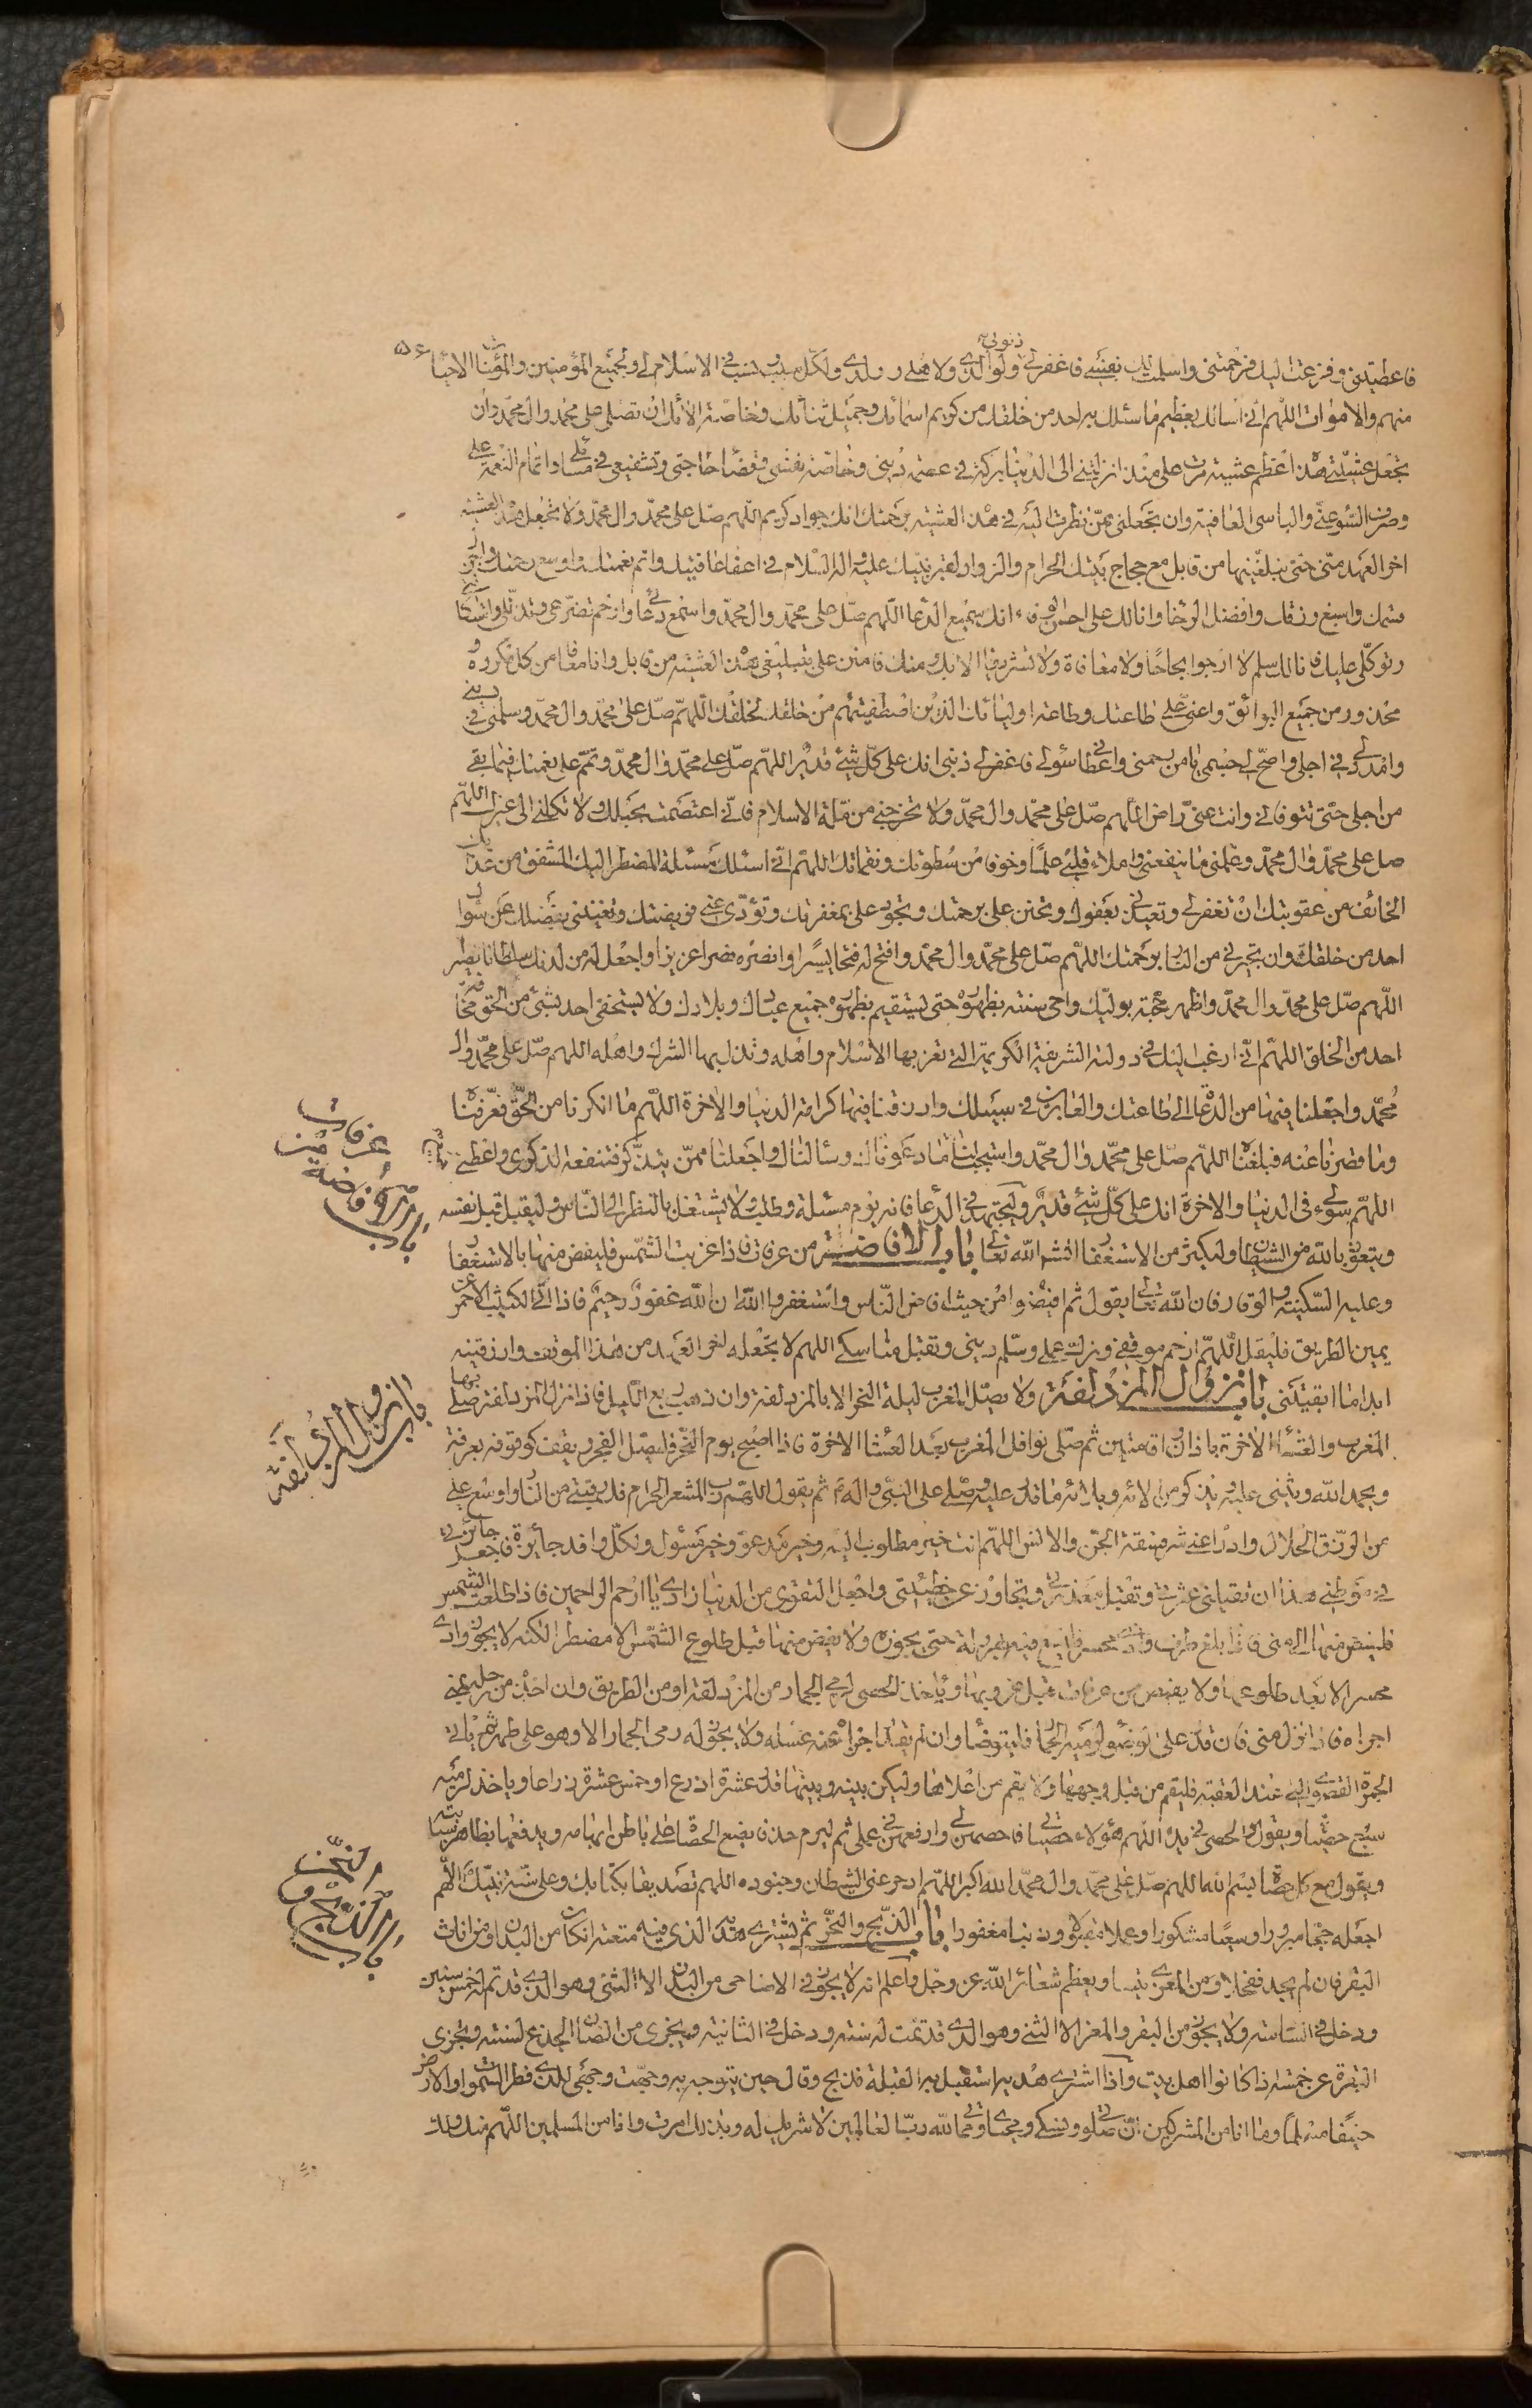 فاعطيتني وفزعت اليك فرحمتني واسلمت اليك نفسي فاغفر لي ذنوبي ولوالدي ولاهلي وولدي ولكل سبب ونسب في الاسلام لي ولجميع المؤمنين والمؤمنات الاحياء
منهم والاموات اللهم اني اسالك بعظيم ما سئلك به احد من خلقك من كريم اسمائك وجميل ثنائك وخاصة الائك ان تصلى على محمد وال محمد وان
تجعل عشيتي هذه اعظم عشية مرت على منذ انزلتني الى الدنيا بركة في عصمة ديني وخاصة نفسى وقضاء حاجتى وتشفيعي في مسائلي واتمام النعمة على
وصرف السوء عني والباسى العافية وان تجعلنى ممن نظرت اليه في هذه العشية برحمتك انك جواد كريم اللهم صل على محمد وال محمد ولا تجعل هذه العشية
اخر العهد منى حتى تبلغنيها من قابل مع حجاج بيتك الحرام والزوار لقبر نبيك عليه واله السلام في اعفا عافيتك واتم نعمتك واوسع رحمتك واجزل
قسمك واسبغ رزقك وافضل الرخا وانا لك على احسن الوفاء انك سميع الدعا اللهم صل على محمد وال محمد واسمع دعائي وارحم تضرعى وتذللى واستكانتي
وتوكلى عليك فانا لك سلم لا ارجوا نجاحا ولا معافاة ولا تشريفا الا بك ومنك فامنن على بتبليغى هذه العشية من قابل وانا معافا من كل مكروه و
محذور ومن جميع البوائق واعني على طاعتك وطاعة اوليائك الذين اصطفيتهم من خلقك لخلقك اللهم صل على محمد وال محمد وسلمنى في ديني
وامدد لي في اجلى واصح لي جسمي يا من رحمنى واعطاني سؤلي فاغفر لي ذنبى انك على كل شئ قدير اللهم صل على محمد وال محمد وتمم على نعمتك فيما بقى
من اجلى حتى تتوفاني وانت عنى راض اللهم صل على محمد وال محمد ولا تخرجني من ملة الاسلام فاني اعتصمت بحبلك ولا تكلني الى غيرك اللهم
صل على محمد وال محمد وعلمنى ما ينفعنى واملاء قلبى علما وخوفا من سطوتك ونقماتك اللهم اني اسئلك مسئلة المضطر اليك المشفق من عذابك
الخائف من عقوبتك ان تغفر لي وتعيذني بعفوك وتحنن على برحمتك وتجود على بمغفرتك وتؤدى عني فريضتك وتغنيني بفضلك عن سؤال
احد من خلقك وان تجيرني من النار برحمتك اللهم صل على محمد وال محمد وافتح له فتحا يسيرا وانصره نصرا عزيزا واجعل له من لدنك سلطانا نصيرا
اللهم صل على محمد وال محمد واظهر حجته بوليك واحى سنته بظهوره حتى يستقيم بظهوره جميع عبادك وبلادك ولا يستخفى احد بشئ من الحق مخافة
احد من الخلق اللهم اني ارغب اليك في دولته الشريفة الكريمة التي تعز بها الاسلام واهله وتذل بها الشرك واهله اللهم صل على محمد وال
محمد واجعلنا فيها من الدعاة الى طاعتك والعابرين في سبيلك وارزقنا فيها كرامة الدنيا والاخرة اللهم ما انكرنا من الحق فعرفناه
وما قصرنا عنه فبلغناه اللهم صل على محمد وال محمد واستجب لنا ما دعوناك وسألناك واجعلنا ممن يتذكر فتنفعه الذكرى واعطني
اللهم سؤلي فى الدنيا والاخرة انك على كل شئ قدير وليجتهد في الدعا فانه يوم مسئلة وطلب ولا يشتغل بالنظر الى الناس وليقبل قبل نفسه
ويتعوذ بالله من الشيطان وليكثر من الاستغفار انشاء الله تعالى باب الافاضة من عرفات فاذا غربت الشمس فليفض منها بالاستغفار
وعليه السكينة والوقار فان الله تعالى يقول ثم افيضوا من حيث افاض الناس واستغفروا الله ان الله غفور رحيم فاذا اتى الكثيب الاحمر عن
يمين الطريق فليقل اللهم ارحم موقفى وزك عملي وسلم ديني وتقبل مناسكي اللهم لا تجعله اخر العهد من هذا الموقف وارزقنيه
ابدا ما ابقيتنى باب نزول المزدلفة ولا يصل المغرب ليلة النحر الا بالمزدلفة وان ذهب ربع الليل فاذا نزل المزدلفة صلى بها
المغرب والعشاء الاخرة باذان واقامتين ثم صلى نوافل المغرب بعد العشاء الاخرة فاذا اصبح يوم النحر فليصل الفجر ويقف كوقوفه بعرفة
ويحمد الله ويثنى عليه ويذكر من الائه وبلائه ما قدر عليه ويصلى على النبى واله ثم يقول اللهم رب المشعر الحرام فك رقبتى من النار واوسع على
من الرزق الحلال وادرا عنى شر فسقة الجن والانس اللهم انت خير مطلوب اليه وخير مدعو وخير مسئول ولكل وافد جائزة فاجعل جائزتي
في موطني هذا ان تقيلنى عثرتي وتقبل معذرتي وتتجاوز عن خطيئتى واجعل التقوى من الدنيا زادي يا ارحم الراحمين فاذا طلعت الشمس
فليفض منها الى منى فاذا بلغ طرف وادى محسر فليسع فيه هرولة حتى يجوزه ولا يفض منها قبل طلوع الشمس الا مضطرا لكنه لا يجوز وادي
محسر الا بعد طلوعها ولا يفيض من عرفات قبل غروبها ويأخذ الحصى لرمي الجمار من المزدلفة او من الطريق وان اخذه من رحله بمنى
اجزاه فاذا نزل منى فان قدر على الوضوء لرميه الجمار فليتوضأ وان لم يقدر اجزأه عنه غسله ولا يجوز له رمى الجمار الا وهو على طهر ثم ياتي
الجمرة القصوى التي عند العقبة فليقم من قبل وجهها ولا يقم من اعلاها وليكن بينه وبينها قدر عشرة اذرع او خمس عشرة ذراعا وياخذ لرميه
سبع حصيات ويقول والحصى في يده اللهم هؤلاء حصياتي فاحصهن لي وارفعهن في عملي ثم ليرم حذفا يضع الحصاة على باطن ابهامه ويدفعها بظاهر سبابته
ويقول مع كل حصاة بسم الله اللهم صل على محمد وال محمد الله اكبر اللهم ادحر عنى الشيطان وجنوده اللهم تصديقا بكتابك وعلى سنة نبيك اللهم
اجعله حجا مبرورا وسعيا مشكورا وعملا مقبولا وذنبا مغفورا باب الذبح والنحر ثم ليشترى هديه الذي فيه متعته ان كان من البدن او من اناث
البقر فان لم يجد ففحلا ومن المعزى تيسا ويعظم شعائر الله عز وجل واعلم انه لا يجوز في الاضاحى من البدن الا الثنى وهو الذي قد تم له خمس سنين
ودخل في السادسة ولا يجوز من البقر والمعز الا الثنى وهو الذي قد تمت له سنته ودخل في الثانية ويجزى من الضان الجذع لسنته ويجزى
البقرة عن خمسة اذا كانوا اهل بيت واذا اشترى هديه استقبل به القبلة فذبح وقال حين يتوجه به وجهت وجهى للذي فطر السموات والارض
حنيفا مسلما وما انا من المشركين ان صلوتي ونسكي ومحياي ومماتي لله رب العالمين لا شريك له وبذلك امرت وانا من المسلمين اللهم منك ولك
باب الافاضة من عرفات
باب نزول المزدلفة
باب الذبح والنحر